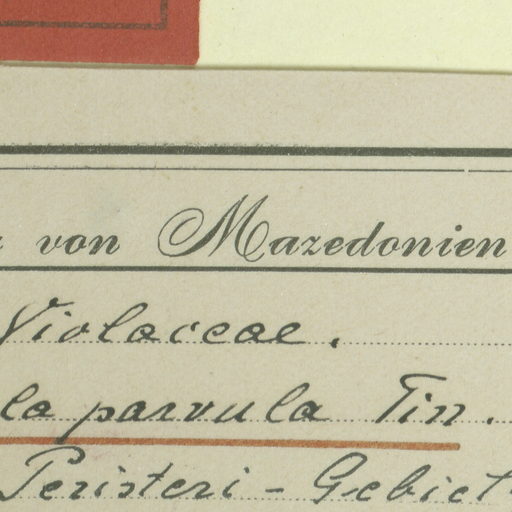 von Mazedonien
Violaceae.
la parvula Tin.
Peristeri - Gebiet